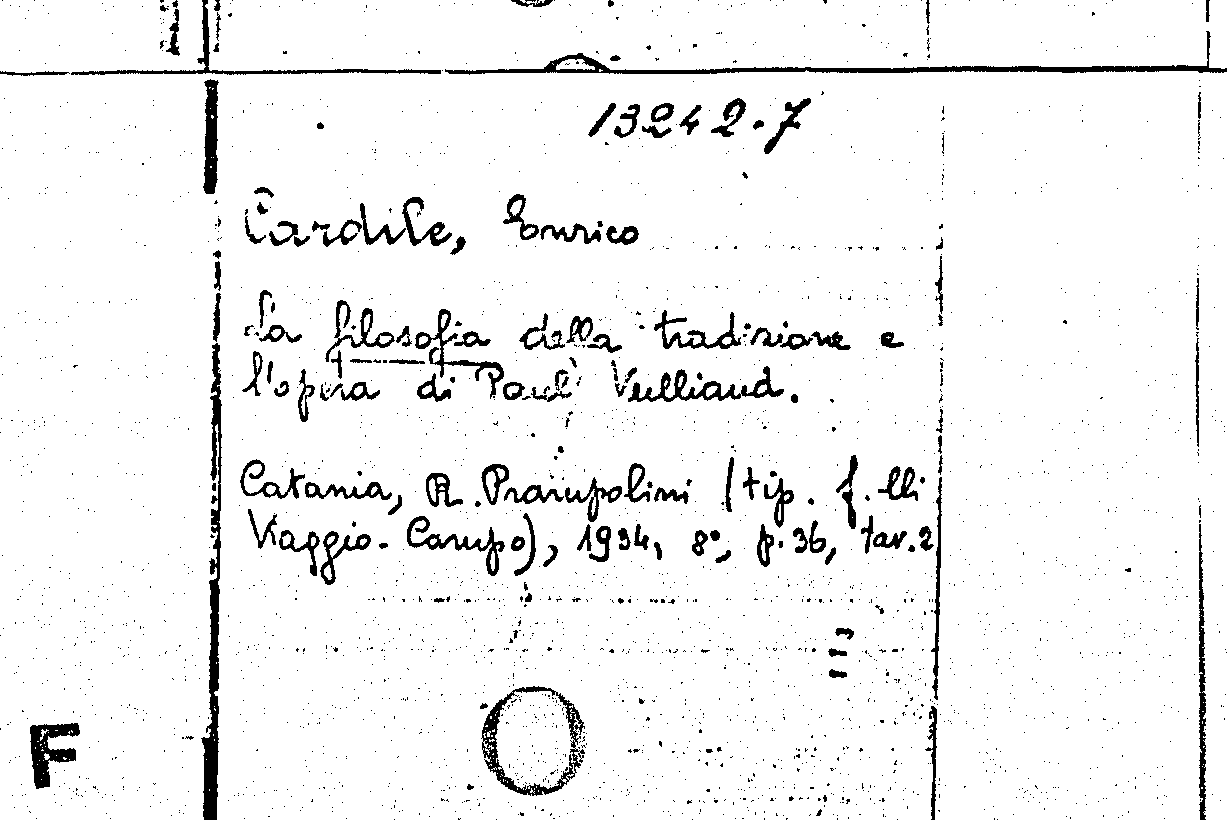 13242.7
Cardile, Enrico
La filosofia della tradizione e
l'opera di Paul Vulliaud.
Catania, R. Prampolini (tip. f.lli
Viaggio-Campo), 1934, 8°, p. 36, tav. 2
F